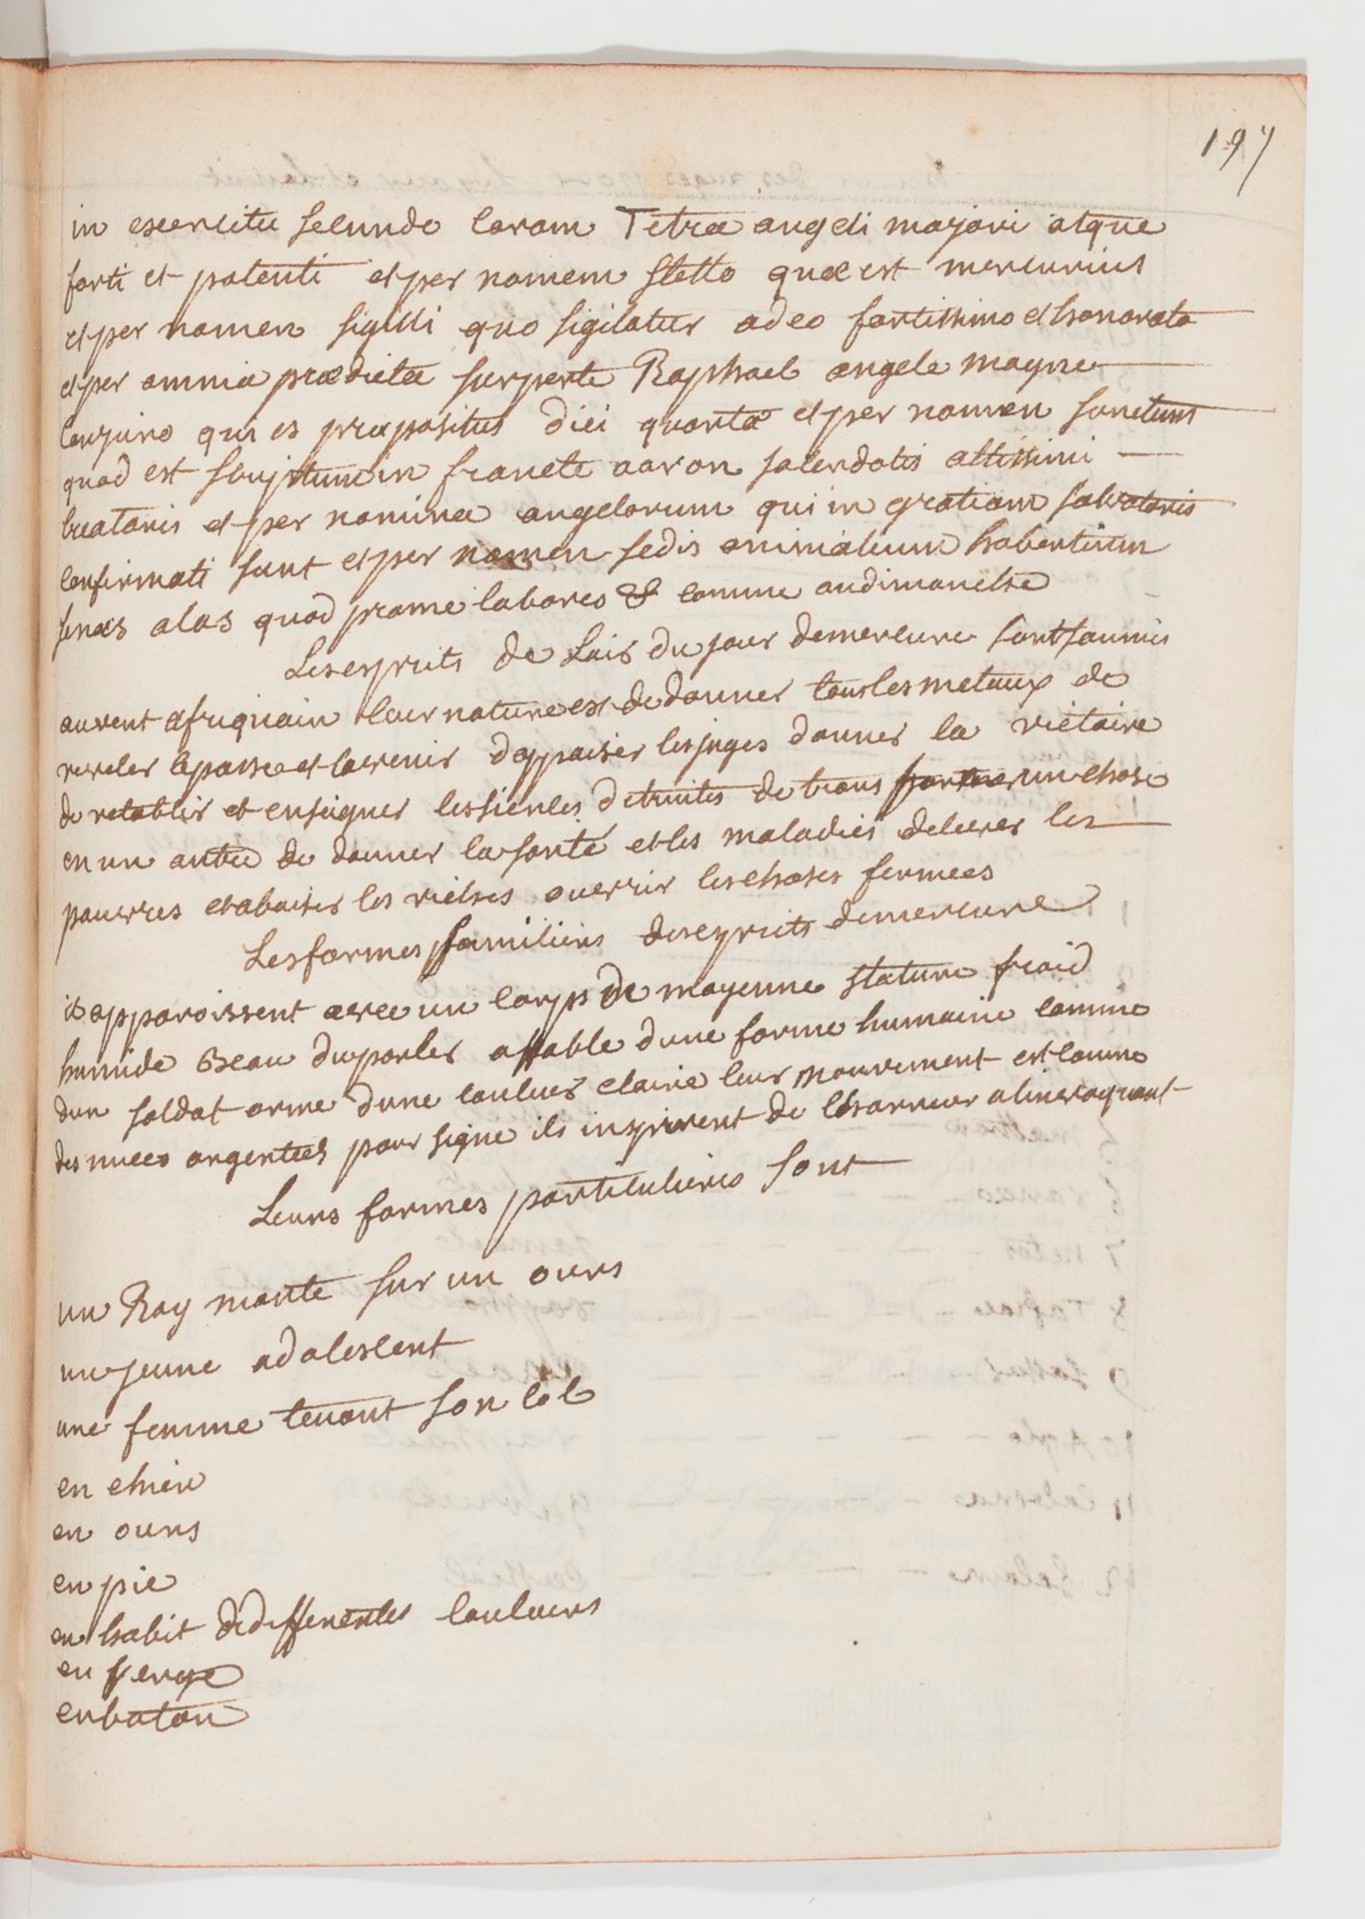 197
in exercitu secundo coram Tetra angeli majori atque
forti et potenti et per nomem stella quæ est mercurius
et per nomen sigilli quo sigilatur adeo fortissimo et honorato
et per omnia prædicta superte Raphael angele magne
conjuro qui es præpositus diei quarta et per nomen sanctum
quod est scriptum in fronete aaron sacerdotis altissimi
creatoris et per nomina angelorum qui in gratiam salvatoris
confirmati sunt et per nomen sedis animalium habentium
senas alas quod prome labores & comme audimanche
Les esprits de Lair du jour demercure sont soumis
auvent afriquain leur nature est de donner tous les metaux de
reveler lepasse et lavenir dappaiser les juges donner la victoire
de retablir et enseigner les siences detruites de trans porter un chose
en un autre de donner la sante et les maladies delever les
pauvres et abaiser les riches ouvrir les choses fermees
Les formes familiers des esprits demercure
ils apparoissent avec un corps de moyenne stature froid
humide Beau du parler affable dune forme humaine comme
dun soldat arme dune couleur claire leur mouvement est comme
des nuees argentees pour signe ils inspirent de lhorreur a linvoquant
Leurs formes particulieres sont
un Roy monte sur un ours
un jeune adolescent
une femme tenant son col
en chien
en ours
en pie
en habit de differentes couleurs
en verge
en baton